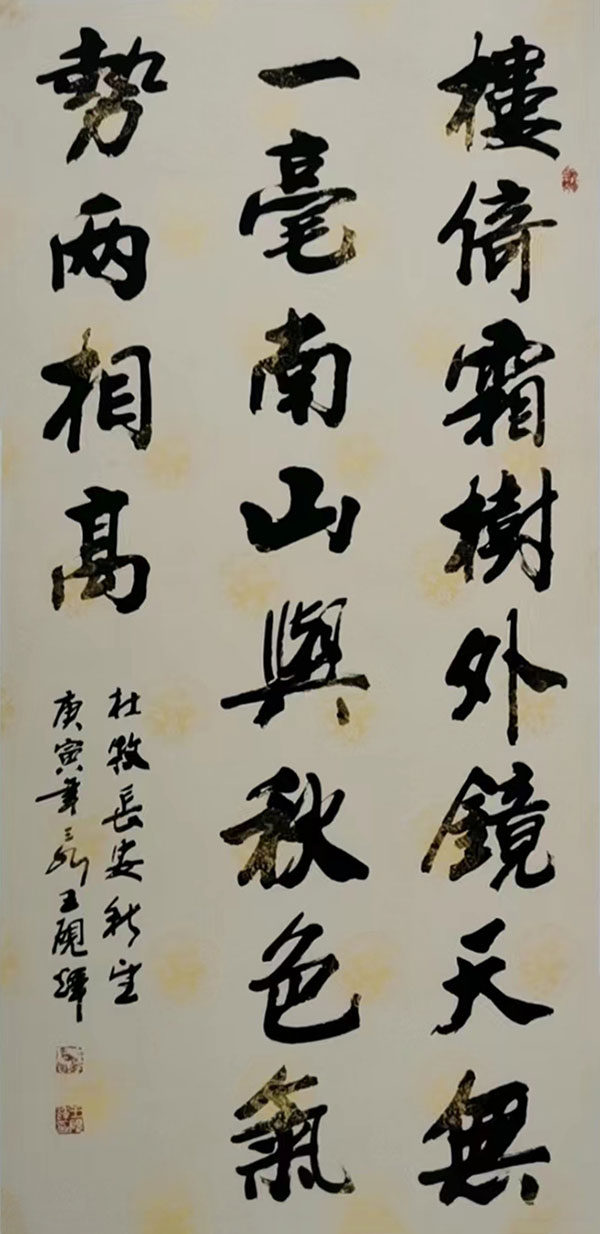 樓倚霜樹外鏡天無
一毫南山與秋色氣
勢两相高
杜牧長安秋望
庚寅年三月王硯輝